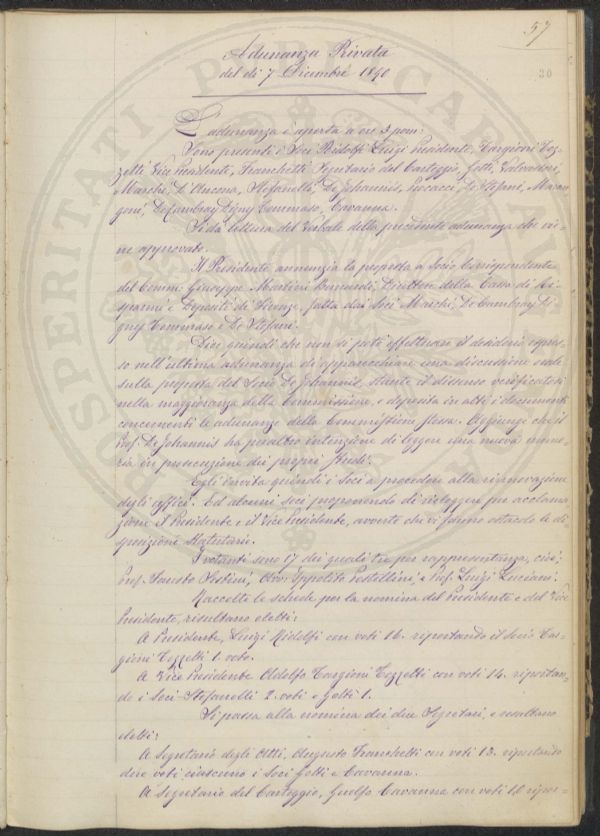 57
30
Adunanza Privata
del dì 7 Dicembre 1890
L'adunanza è aperta a ore 3 pom:
Sono presenti i Soci Ridolfi Luigi Presidente, Targioni Toz-
zetti Vice Presidente, Franchetti Segretario del Carteggio, Gotti, Valvassori,
Marchi, D'Ancona, Stefanelli, De Johannis, De Stefani, Maran-
goni, De Cambray Digny Tommaso, Cavanna.
Si dà lettura del Verbale della precedente adunanza che vie-
ne approvato.
Il Presidente annunzia la proposta a Socio Corrispondente
del Comm: Giuseppe Martini Bernardi, Direttore della Cassa di Ri-
sparmi e Depositi di Firenze, fatta dai Soci Marchi, De Cambray Di-
gny Tommaso e De Stefani.
Dice quindi che non si potè effettuare il desiderio espres-
so nell'ultima adunanza di apparecchiare una discussione orale
sulla proposta del Socio De Johannis, stante il dissenso verificatosi
nella maggioranza della Commissione, e deposita in atti i documenti
concernenti le adunanze della Commissione stessa. Aggiunge che il
Prof. De Johannis ha peraltro intenzione di leggere una nuova memo-
ria in prosecuzione dei propri studi.
Egli invita quindi i Soci a procedere alla rinnovazione
degli uffici. Ed alcuni soci proponendo di rieleggere per acclama-
zione il Presidente e il Vice Presidente, avverte che vi fanno ostacolo le di-
sposizioni Statutarie.
I votanti sono 17 dei quali tre per rappresentanza, cioè;
Prof. Fausto Sestini, Avv: Ippolito Pestellini, e Prof. Luigi Luciani.
Raccolte le schede per la nomina del Presidente e del Vice
Presidente, risultano eletti:
A Presidente, Luigi Ridolfi con voti 16. riportando il Socio Tar-
gioni Tozzetti 1. voto.
A Vice Presidente Adolfo Targioni Tozzetti con voti 14. riportan-
do i Soci Stefanelli 2. voti e Gotti 1.
Si passa alla nomina dei due Segretari, e resultano
eletti:
A Segretario degli Atti, Augusto Franchetti con voti 13. riportando
due voti ciascuno i Soci Gotti e Cavanna.
A Segretario del Carteggio, Guelfo Cavanna con voti 10 ripor-